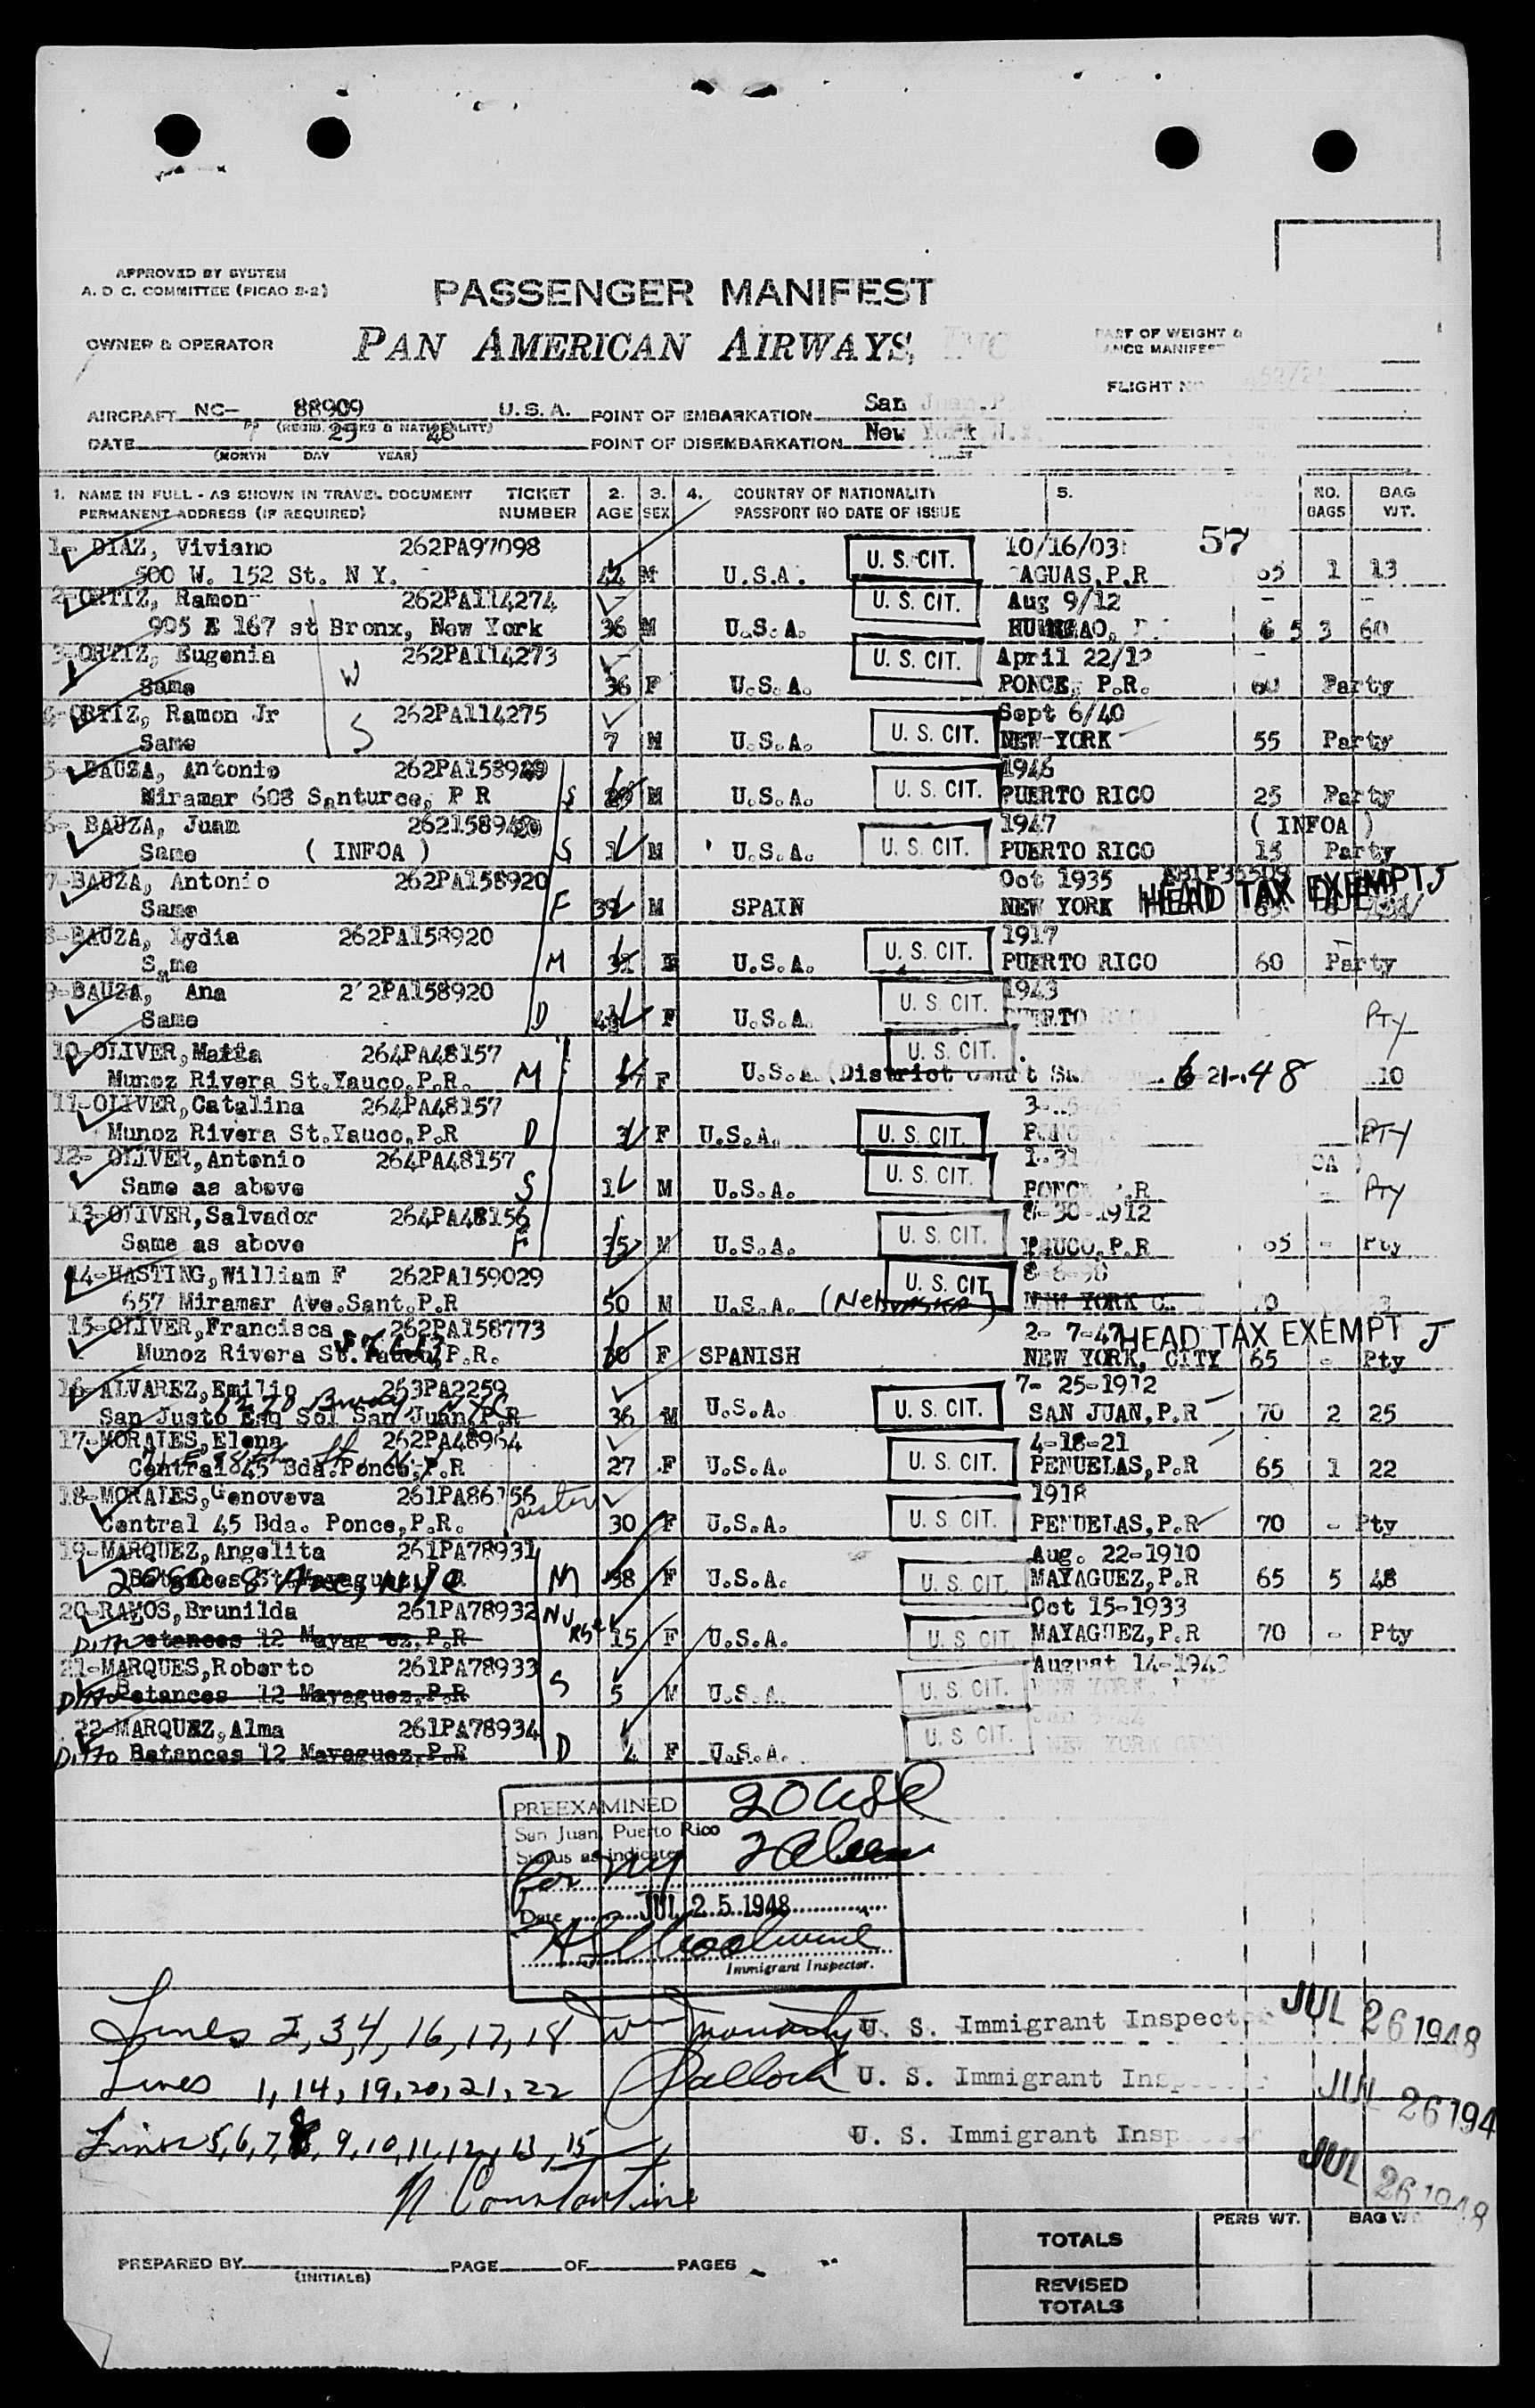 APPROVED BY SYSTEM
A. D C. COMMITTEE (PICAO S-2)
PASSENGER MANIFEST
OWNER & OPERATOR
PAN AMERICAN AIRWAYS, INC
PART OF WEIGHT &
ANCE MANIFEST
FLIGHT NO
AIRCRAFT NC- 88909 U. S. A. POINT OF EMBARKATION San Juan.P.
(REGIS. MARKS & NATIONALITY)
DATE 25 48 POINT OF DISEMBARKATION New York N.
(MONTH DAY YEAR)
1. NAME IN FULL - AS SHOWN IN TRAVEL DOCUMENT TICKET 2. 3. 4. COUNTRY OF NATIONALITY 5. NO. BAG
PERMANENT ADDRESS (IF REQUIRED) NUMBER AGE SEX PASSPORT NO DATE OF ISSUE BAGS WT.
1- DIAZ, Viviano 262PA97098 U. S. CIT. 10/16/03 57
500 W. 152 St. N Y. 44 M U.S.A. AGUAS,P.R 65 1 13
2-ORTIZ, Ramon 262PA114274 U. S. CIT. Aug 9/12
905 E 167 st Bronx, New York 36 M U.S.A. HUMACAO, 65 3 60
3-ORTIZ, Eugenia 262PA114273 U. S. CIT. April 22/12
Same W 36 F U.S.A. PONCE, P.R. 60 Party
4-ORTIZ, Ramon Jr 262PA114275 U. S. CIT. Sept 6/40
Same S 7 M U.S.A. NEW YORK 55 Party
5- BAUZA, Antonio U. S. CIT. 1946
Miramar 608 Santurce, P R S M U.S.A. PUERTO RICO 25 Party
6- BAUZA, Juan U. S. CIT. 1947 ( INFOA )
Same ( INFOA ) S 1 M U.S.A. PUERTO RICO 15 Party
7-BAUZA, Antonio 262PA158920 Oct 1935 HEAD TAX EXEMPT J
Same F 39 M SPAIN NEW YORK
8-BAUZA, Lydia 262PA158920 U. S. CIT. 1917
Same M 31 F U.S.A. PUERTO RICO 60 Party
9-BAUZA, Ana 2 2PA158920 U. S. CIT. 1943
Same D F U.S.A. PTY
10-OLIVER,Maria 264PA48157 U. S. CIT.
Munoz Rivera St.Yauco.P.R. M F U.S.A (District 6-21-48 10
11-OLIVER,Catalina 264PA48157
Munoz Rivera St.Yauco.P.R D 3 F U.S.A. U. S. CIT. PTY
12- OLIVER,Antonio 264PA48157 U. S. CIT. 1-31
Same as above S 1 M U.S.A. PONCE P.R - PTY
13-OLIVER,Salvador 264PA48156 U. S. CIT. 8-30-1912
Same as above F 35 M U.S.A. YAUCO.P.R 65 - Pty
14-HASTING,William F 262PA159029 U. S. CIT. 8-8-98
657 Miramar Ave.Sant.P.R 50 M U.S.A. (Nebraska) NEW YORK C. 70
15-OLIVER,Francisca 262PA158773 2- 7-47 HEAD TAX EXEMPT J
Munoz Rivera St.Yauco,P.R. F SPANISH NEW YORK, CITY 65 - Pty
16-ALVAREZ,Emilio 263PA2259 7- 25-1912
San Justo Esq Sol San Juan,P.R 36 M U.S.A. U. S. CIT. SAN JUAN,P.R 70 2 25
17-MORALES,Elena 262PA48964 4-18-21
Central 45 Bda.Ponce,P.R 27 F U.S.A. U. S. CIT. PENUELAS,P.R 65 1 22
18-MORALES,Genoveva 261PA86156 sister 1918
Central 45 Bda. Ponce,P.R. 30 F U.S.A. U. S. CIT. PENUELAS,P.R 70 - Pty
19-MARQUEZ,Angelita 261PA78931 Aug. 22-1910
M 38 F U.S.A. U. S. CIT. MAYAGUEZ,P.R 65 5 48
20-RAMOS,Brunilda 261PA78932 Oct 15-1933
Ditto Betances 12 Mayaguez,P.R 15 F U.S.A. U. S. CIT. MAYAGUEZ,P.R 70 - Pty
21-MARQUES,Roberto 261PA78933 August 14-1943
Ditto Betances 12 Mayaguez,P.R S 5 M U.S.A. U. S. CIT.
22-MARQUEZ,Alma 261PA78934
Ditto Betances 12 Mayaguez,P.R D 4 F U.S.A. U. S. CIT.
PREEXAMINED 20 USC
San Juan, Puerto Rico
Status as indicated 2 Alien
for NY
Date JUL 25 1948
Immigrant Inspector.
Lines 2,3,4, 16, 17, 18 U. S. Immigrant Inspector JUL 26 1948
Lines 1, 14, 19, 20, 21, 22 U. S. Immigrant Inspector JUL 26 194
Lines 5, 6, 7, 8, 9, 10, 11, 12, 13, 15 U. S. Immigrant Inspector JUL 26 1948
N Constantine
PERS WT. BAG WT
TOTALS
PREPARED BY PAGE OF PAGES
(INITIALS)
REVISED
TOTALS